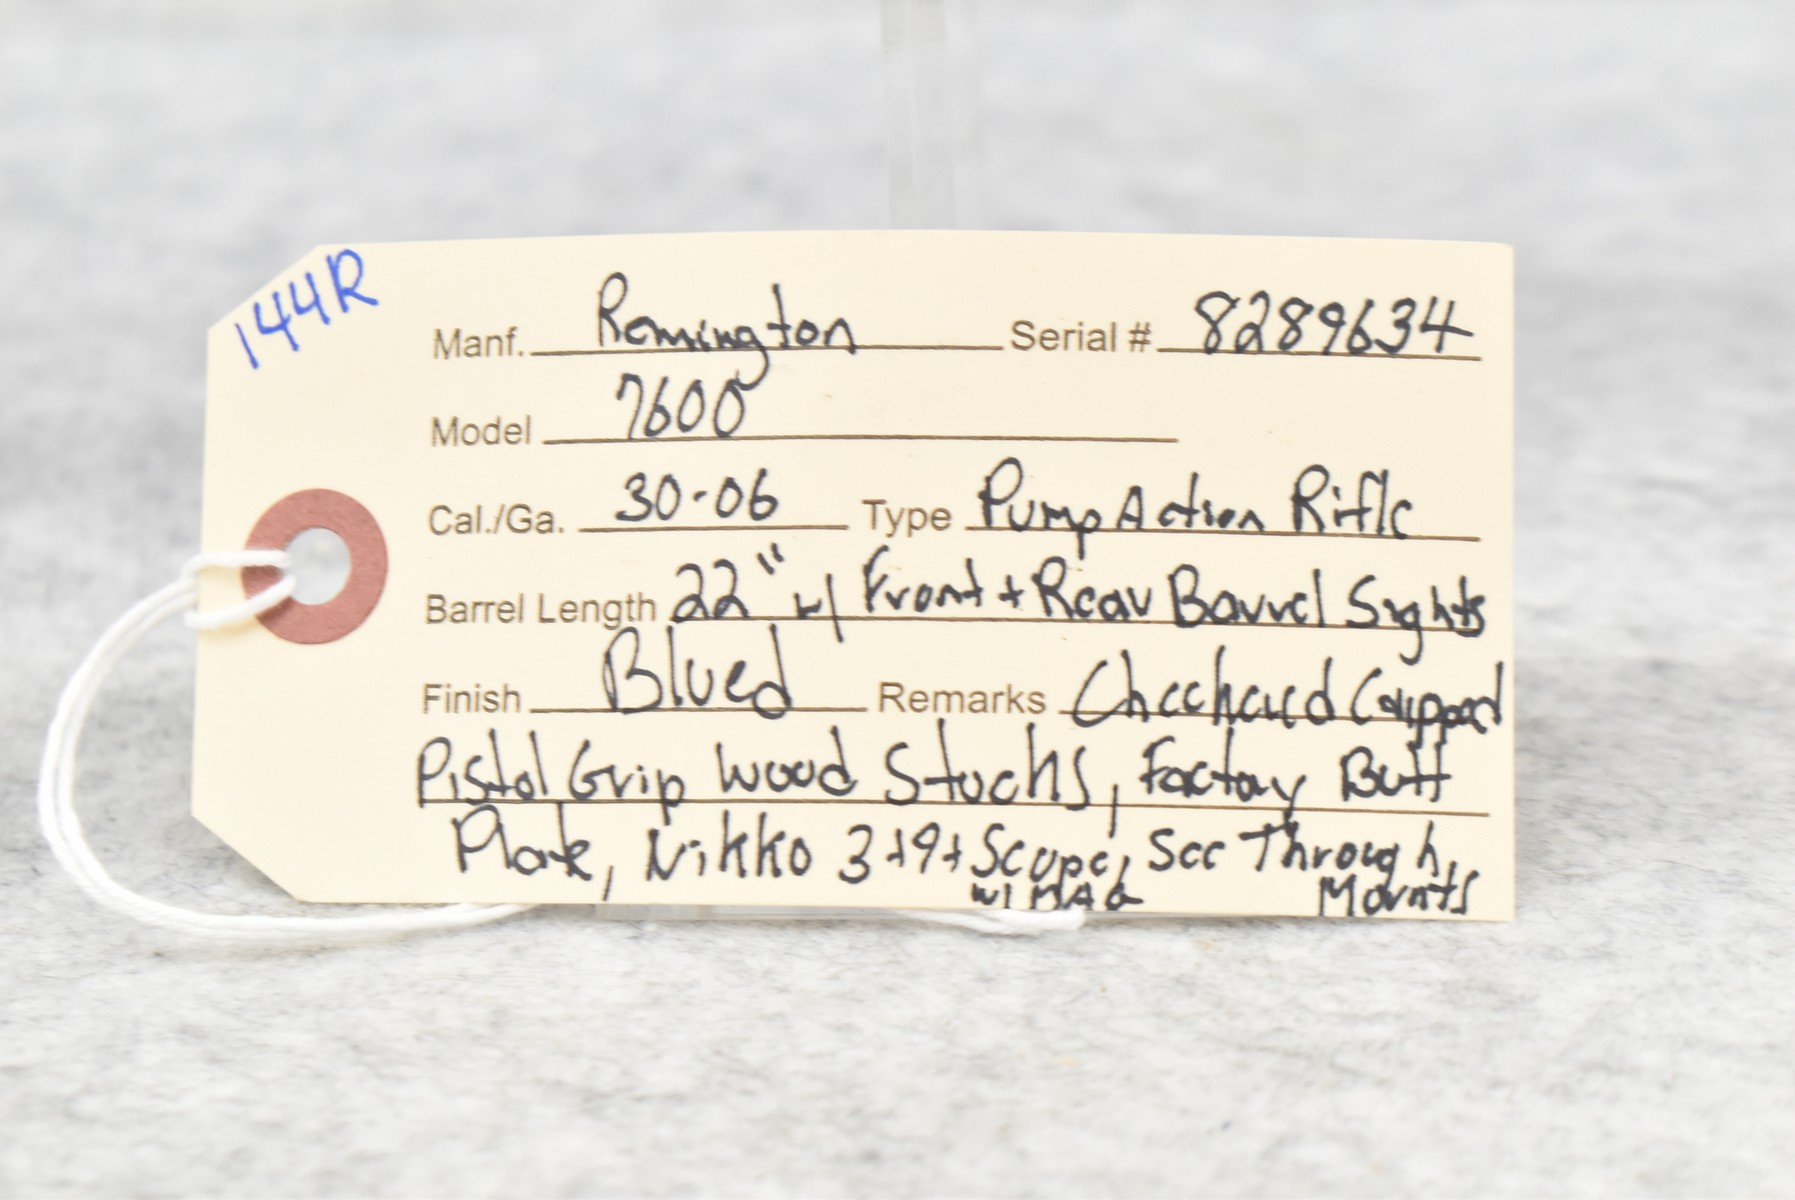 144R
Manf. Remington Serial # 8289634
Model 7600
Cal./Ga. 30-06 Type Pump Action Rifle
Barrel Length 22" w/ Front + Rear Barrel Sights
Finish Blued Remarks Checkered Capped
Pistol Grip Wood Stocks, Factory Butt
Plate, Nikko 3+9+ Scope, See Through,
w/ Mounts